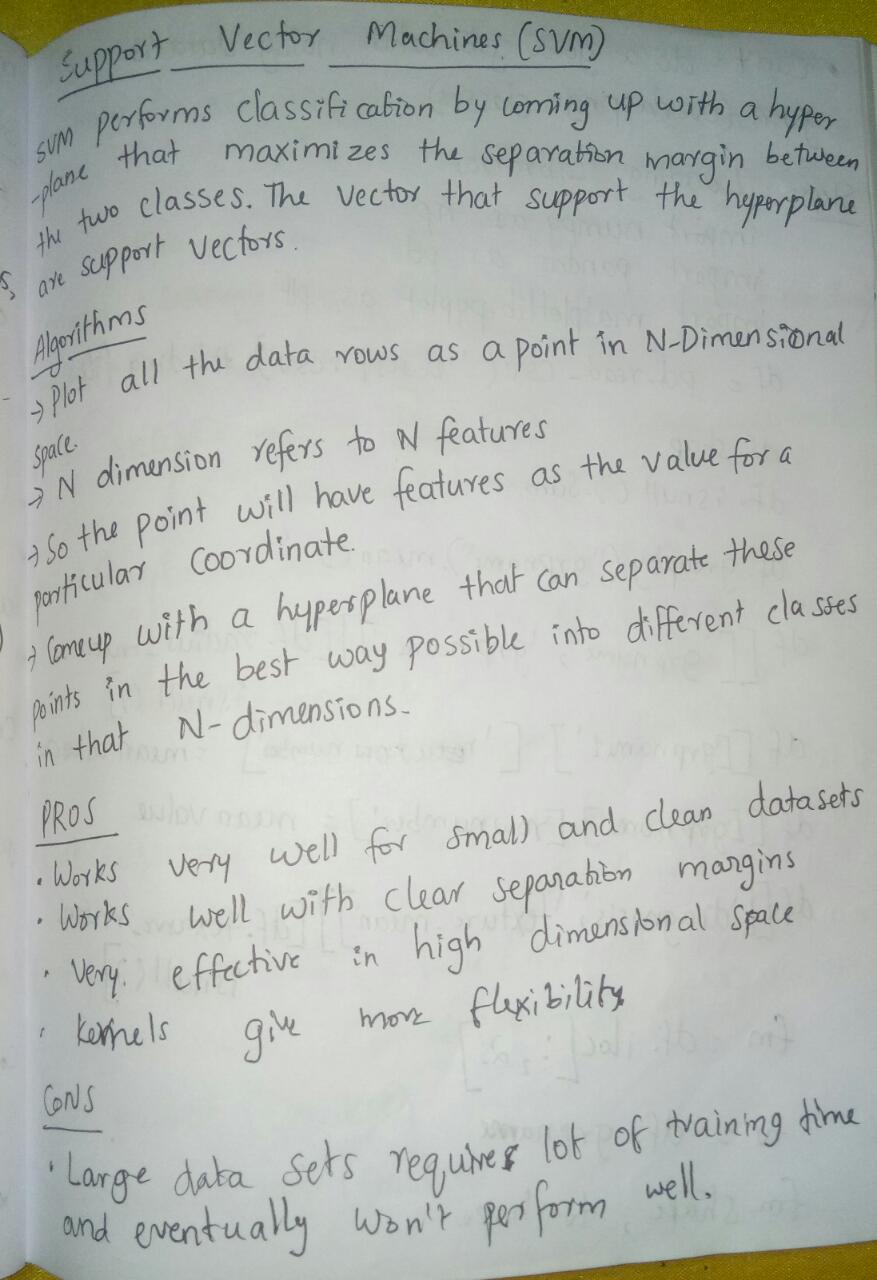 Support Vector Machines (SVM)
SVM performs classification by coming up with a hyper
-plane that maximizes the separation margin between
the two classes. The vector that support the hyperplane
are support vectors.
Algorithms
→ Plot all the data rows as a point in N-Dimensional
space.
→ N dimension refers to N features
→ So the point will have features as the value for a
particular coordinate.
→ Come up with a hyperplane that can separate these
points in the best way possible into different classes
in that N-dimensions.
PROS
• Works very well for small and clean datasets
• Works well with clear separation margins
• Very. effective in high dimensional space
• kernels give more flexibility
CONS
• Large data sets requires lot of training time
and eventually won't perform well.